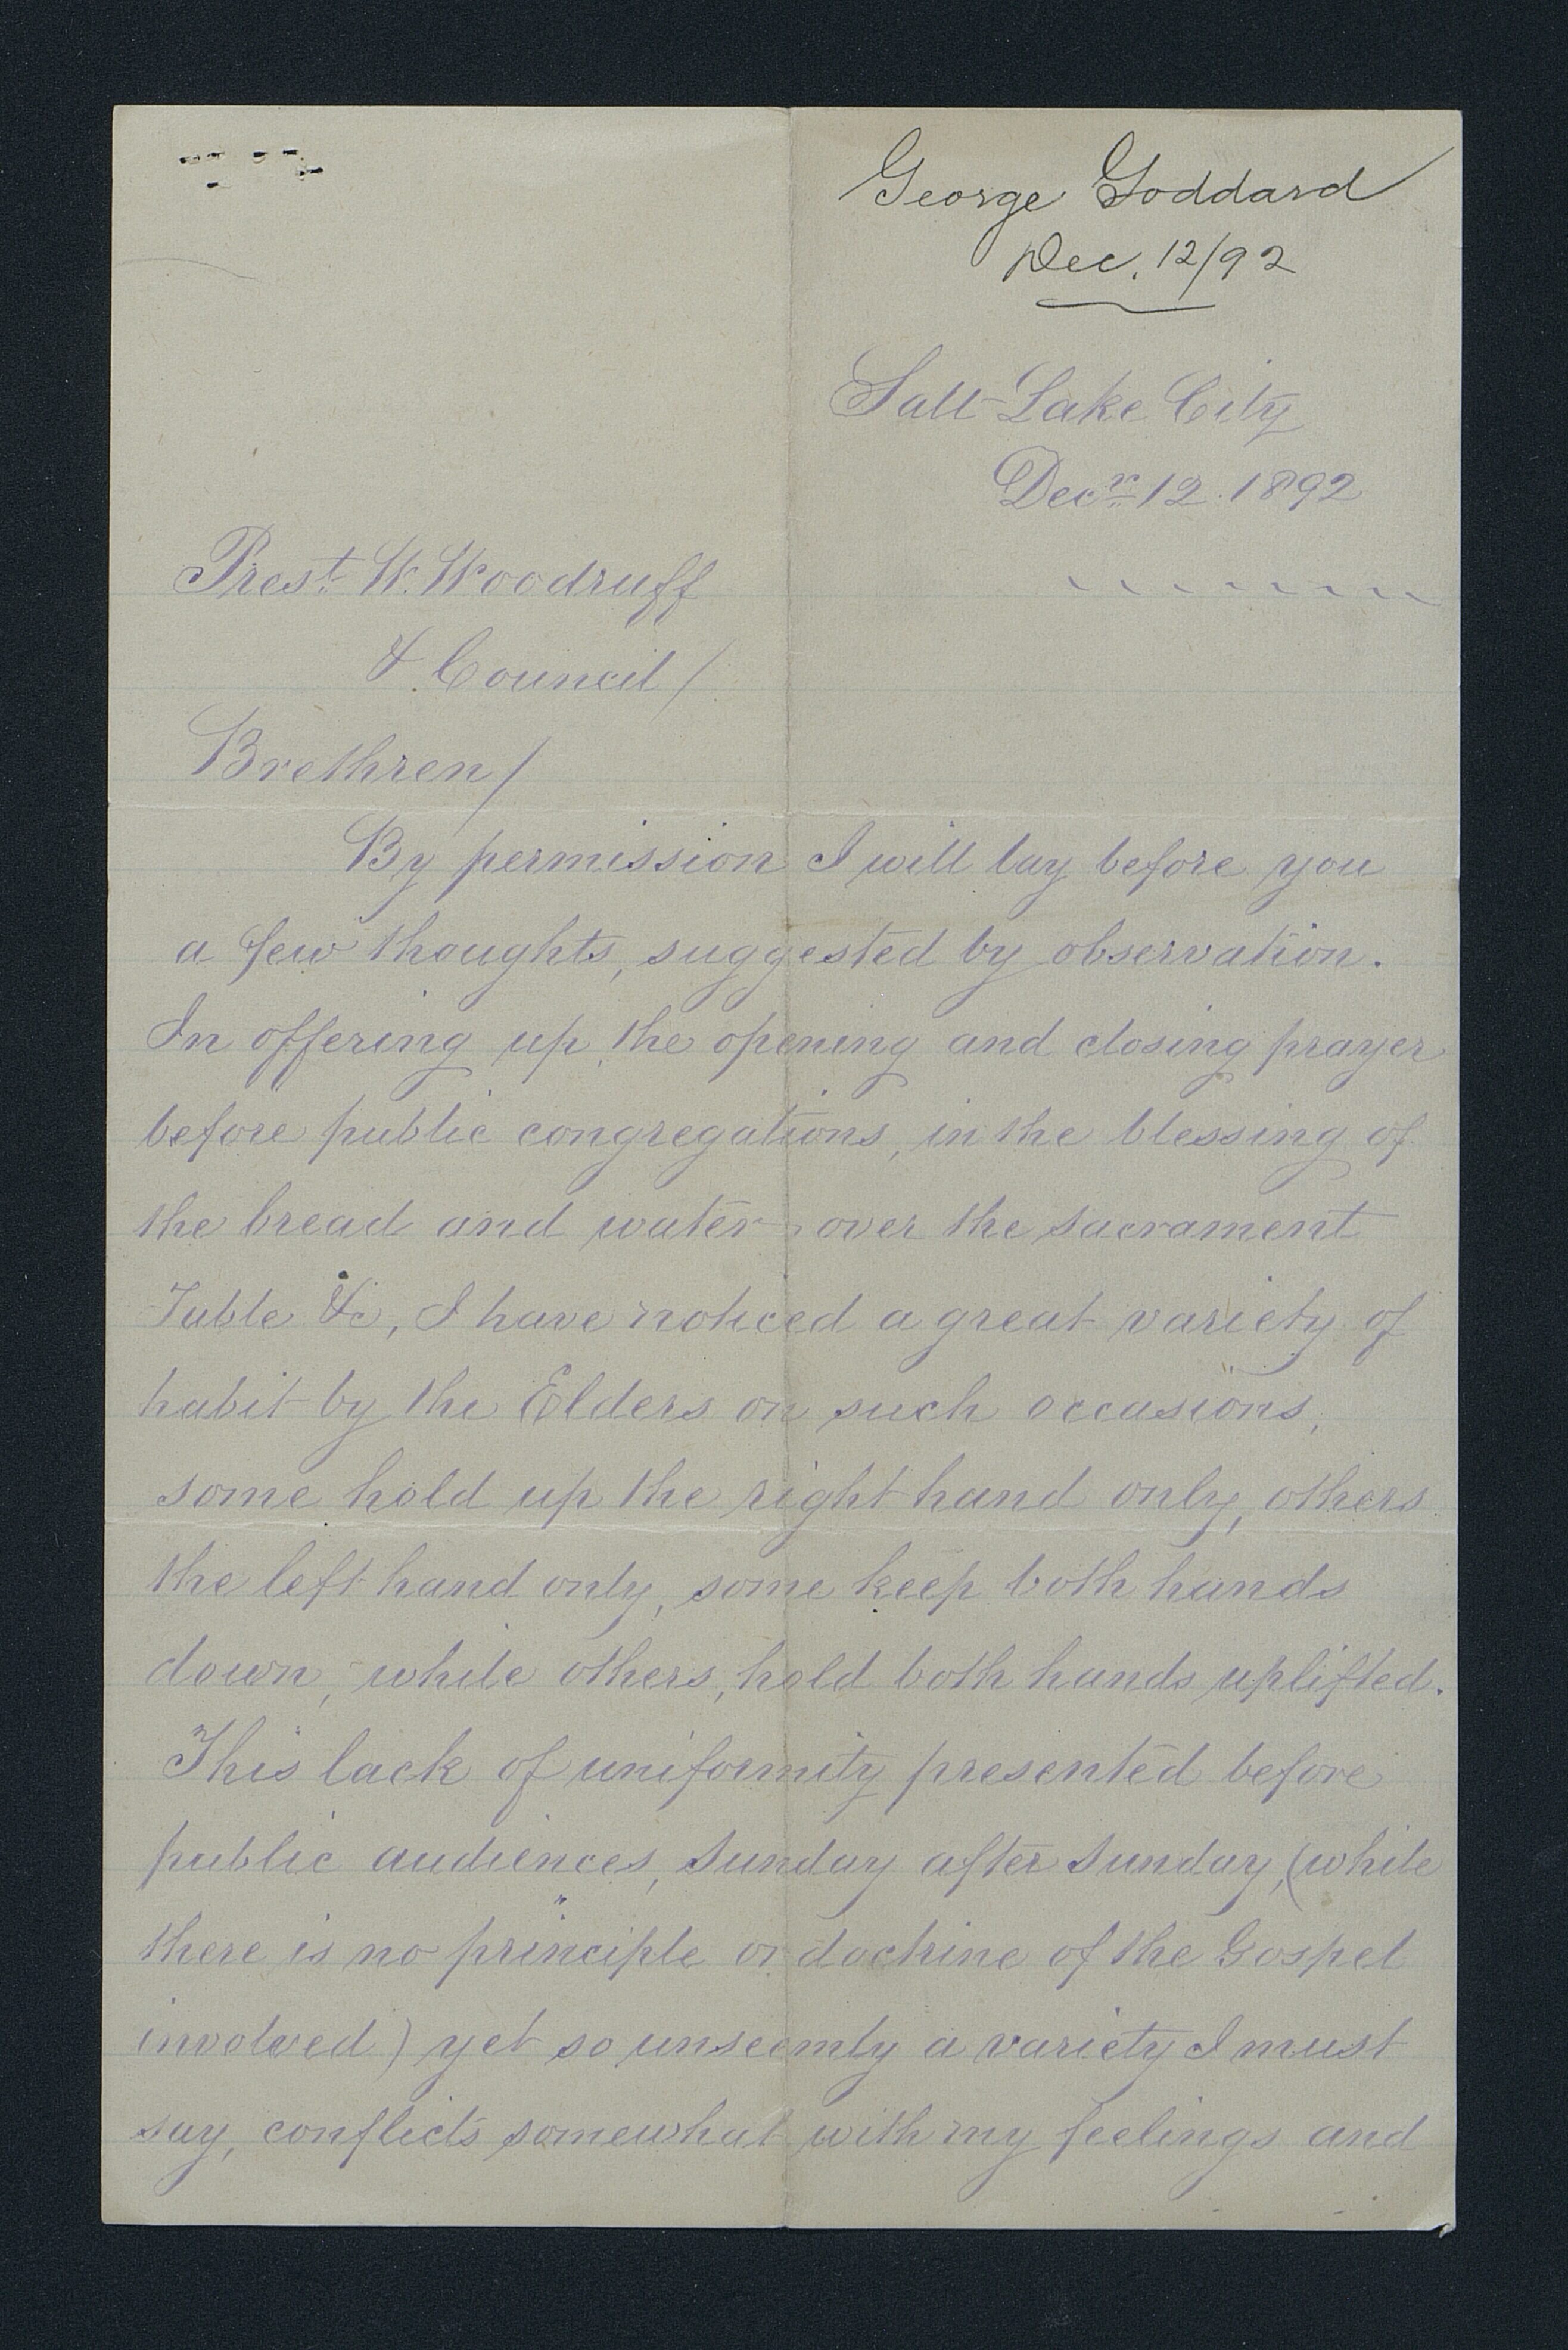 George Goddard
Dec. 12/92
Salt Lake City
Decr. 12. 1892
Prest. W. Woodruff
& Council/
Brethren/
By permission I will lay before you
a few thoughts, suggested by observation.
In offering up the opening and closing prayer
before public congregations, in the blessing of
the bread and water, over the sacrament
Table &c, I have noticed a great variety of
habit by the Elders on such occasions,
some hold up the right hand only, others
the left hand only, some keep both hands
down, while others, hold both hands uplifted.
This lack of uniformity presented before
public audiences, Sunday after Sunday, (while
there is no principle or doctrine of the Gospel
involved) yet so unseemly a variety I must
say, conflicts somewhat with my feelings and